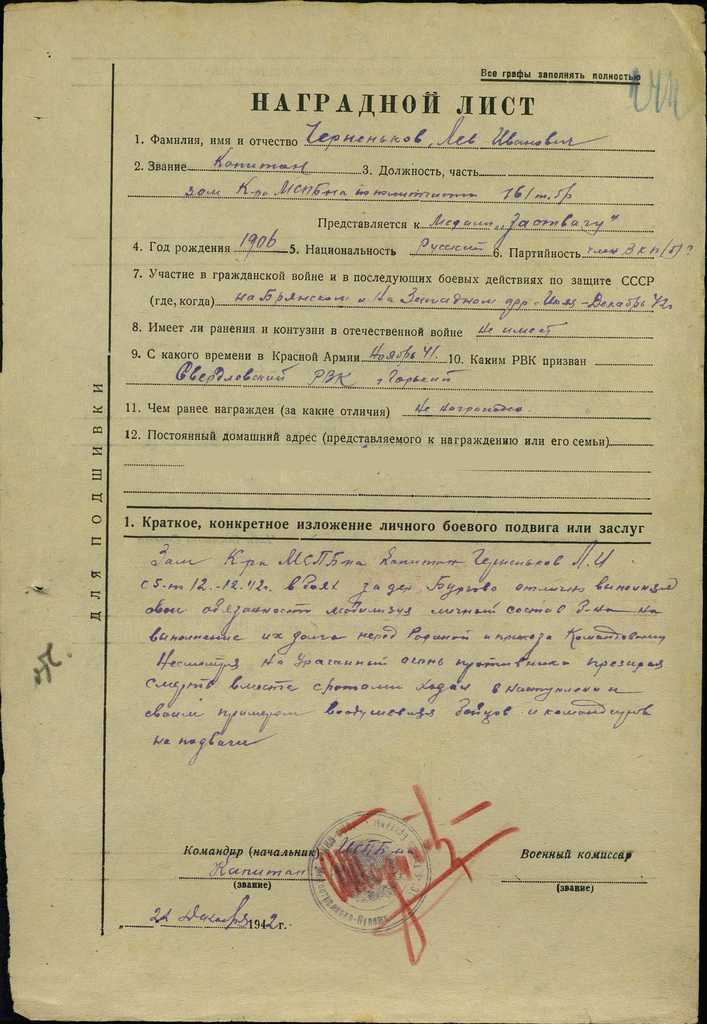 Все графы заполнять полностью
НАГРАДНОЙ ЛИСТ
1. Фамилия, имя и отчество Черненьков, Лев Иванович
2. Звание Капитан 3. Должность, часть
зам К-ра МСПБ-на 161 т. бр
Представляется к Медали „За отвагу"
4. Год рождения 1906 5. Национальность Русский 6. Партийность член ВКП(б)
7. Участие в гражданской войне и в последующих боевых действиях по защите СССР
(где, когда) на Брянском и на Западном фр. Декабрь 42г
8. Имеет ли ранения и контузии в отечественной войне не имеет
9. С какого времени в Красной Армии Ноябрь 41. 10. Каким РВК призван
Свердловский РВК г Горький
11. Чем ранее награжден (за какие отличия) не награжден
12. Постоянный домашний адрес (представляемого к награждению или его семьи)
ДЛЯ ПОДШИВКИ
1. Краткое, конкретное изложение личного боевого подвига или заслуг
Зам К-ра МСПБ-на Капитан Черненьков Л.И
с 5-го 12.-12.42г. в боях за дер Бурцево отлично выполнял
свои обязанности мобилизуя личный состав б-на на
выполнение их долга перед Родиной и приказа Командования
Несмотря на Ураганный огонь противника презирая
смерть вместе с ротами ходил в наступление и
своим примером воодушевлял бойцов и командиров
на подвиги
Командир (начальник) МСПБ-на
Капитан
(звание)
Военный комиссар
(звание)
„22 Декабря 1942 г.